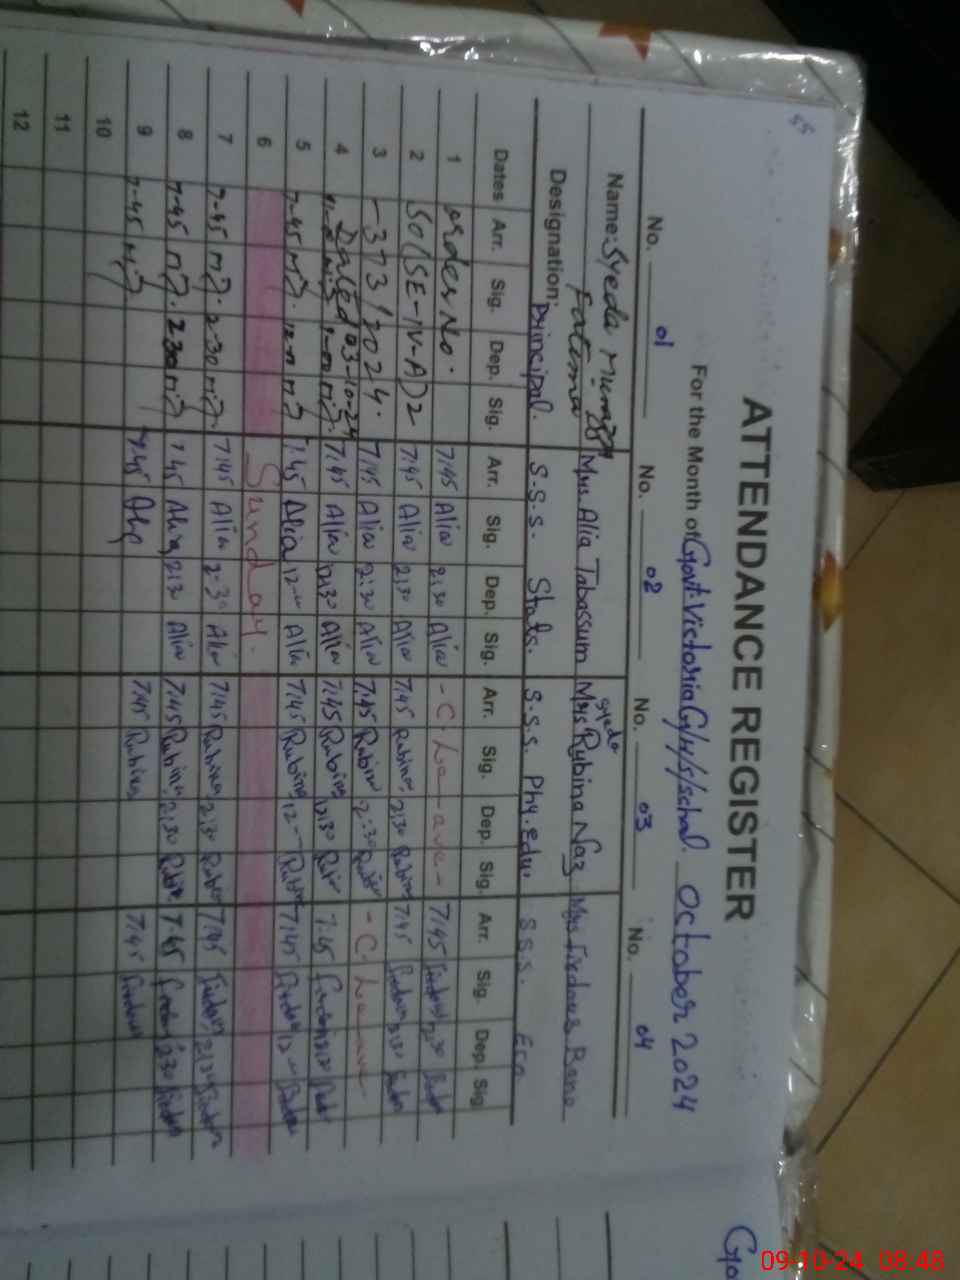 55
ATTENDANCE REGISTER
For the Month of Govt. Victoria G/H/S/School. October 2024
No. 01 No. 02 No. 03 No. 04
Name: Syeda Fatima Mrs Alia Tabassum Mrs Syeda Rubina Naz Mrs Firdous Rana
Designation: Principal. S.S.S. Stats. S.S.S. Phy. Edu. S.S.S. Eco
Dates Arr. Sig. Dep. Sig. Arr. Sig. Dep. Sig. Arr. Sig. Dep. Sig. Arr. Sig. Dep. Sig.
1 Order No. 7:45 Alia 2:30 Alia - C. Leave - 7:45 2:30
2 SO(SE-IV-A)2 7:45 Alia 2:30 Alia 7:45 Rubina 2:30 Rubina 7:45 2:30
3 -373/2024. 7:45 Alia 2:30 Alia 7:45 Rubina 2:30 Rubina - C. Leave
4 Dated 03-10-24 7:45 Alia 12:30 Alia 7:45 Rubina 12:30 Rubina 7:45 12:30
5 7-45 12- 7:45 Alia 12- Alia 7:45 Rubina 12- Rubina 7:45 12-
6 Sunday.
7 7-45 2-30 7:45 Alia 2:30 Alia 7:45 Rubina 2:30 Rubina 7:45 2:30
8 7-45 2-30 7:45 Alia 2:30 Alia 7:45 Rubina 2:30 Rubina 7:45 2:30
9 7-45 7:45 7:45 Rubina 7:45
10
11
12
09-10-24 08:48